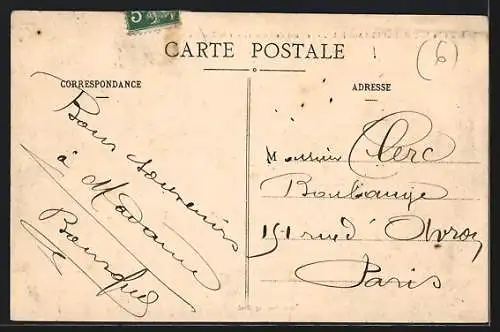 5
CARTE POSTALE
(6)
CORRESPONDANCE
Bons souvenirs
à Madame
ADRESSE
Monsieur Clerc
Boulange
151 rue d'Avron
Paris